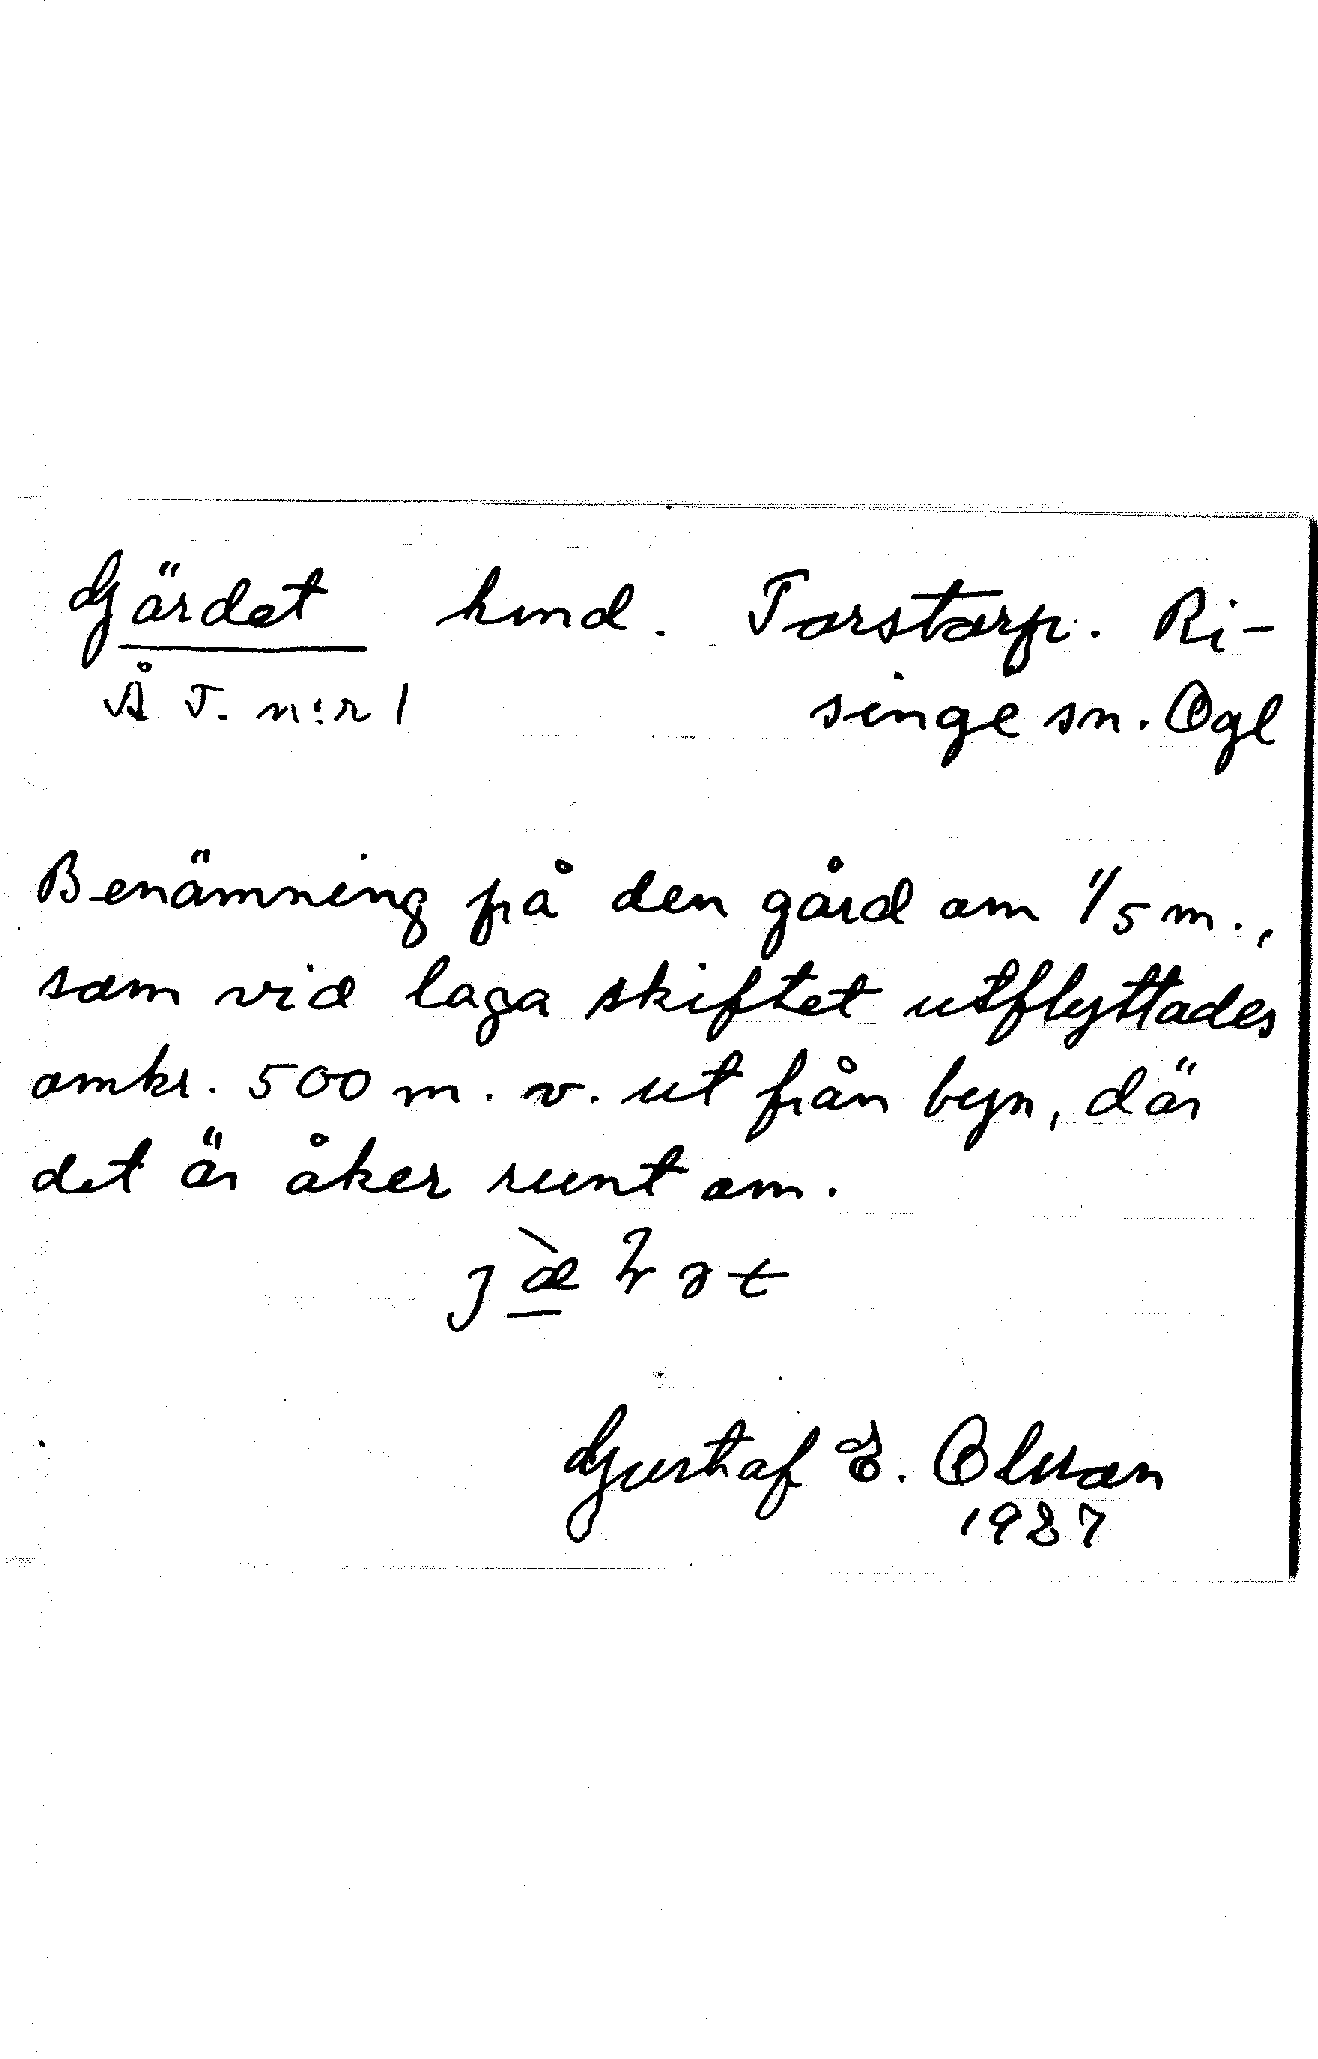 Gärdet hmd. Torstorp. Ri-
Å T. n:r 1 singe sn. Ögl
Benämning på den gård om 1/5 m.,
som vid laga skiftet utflyttades
omkr. 500 m. v. ut från byn, där
det är åker runt om.
Gustaf E. Olsson
1927